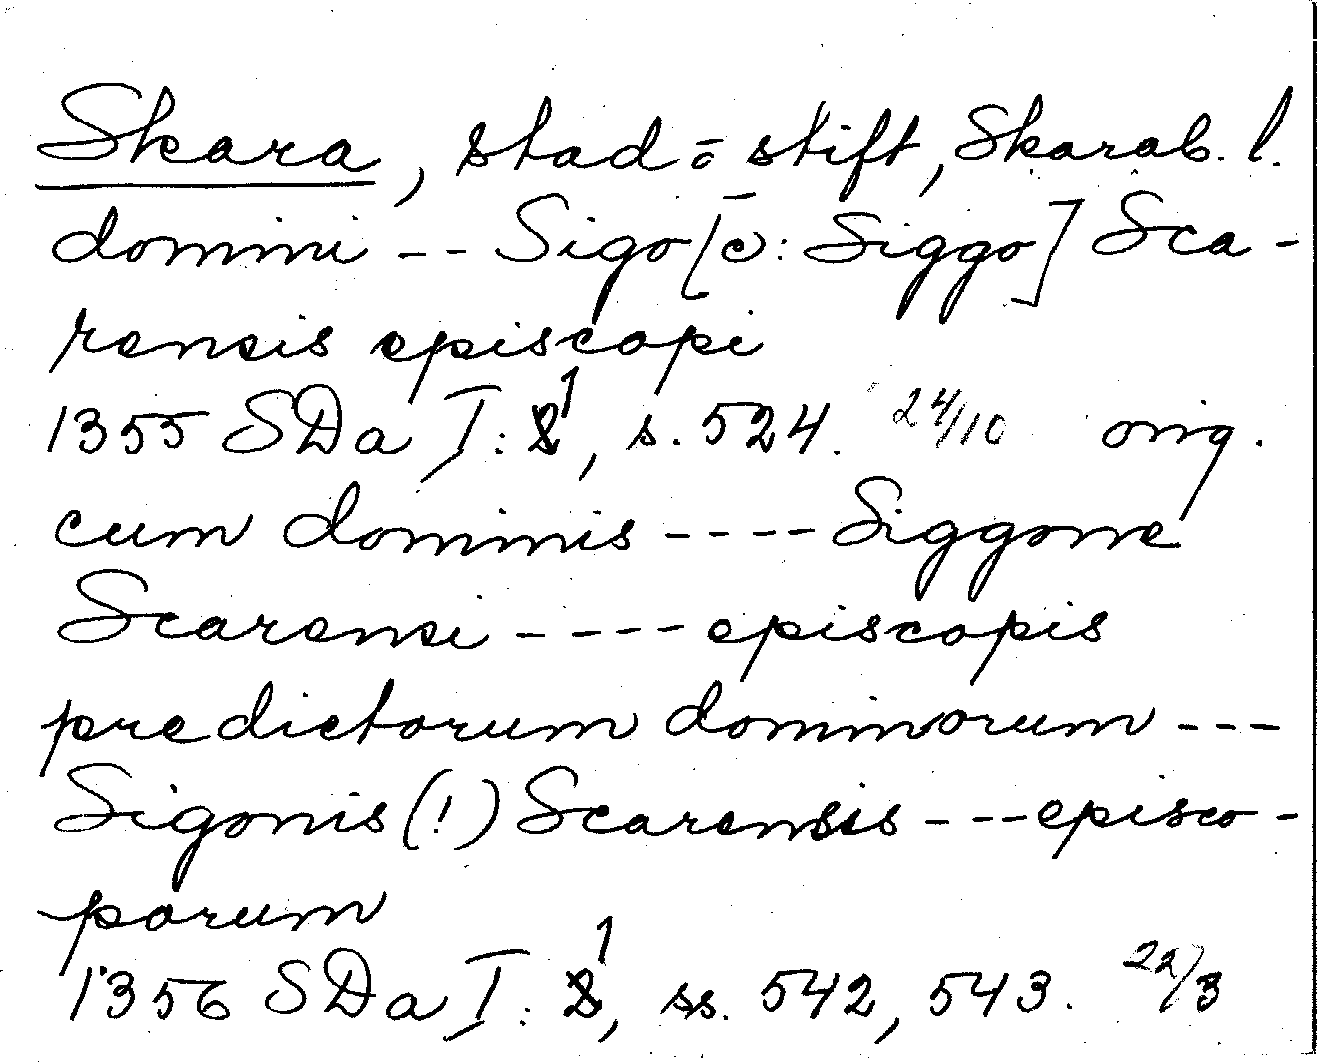 Skara, stad o stift, Skarab. l.
domini -- Sigo [ɔ: Siggo] Sca-
rensis episcopi
1355 SDa I: 1, s. 524. 24/10 orig.
cum dominis ---- Siggone
Scarensi ---- episcopis
predictorum dominorum ---
Sigonis (!) Scarensis --- episco-
porum
1356 SDa I: 1, ss. 542, 543. 22/3